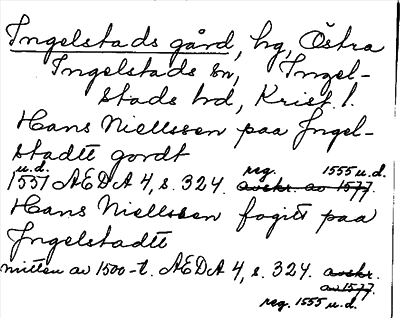 Ingelstads gård, hg, Östra
Ingelstads sn, Ingel-
stads hd, Krist. l.
Hans Niellssen paa Jngel-
stadtt gordt
u.d.
1551 AEDA 4, s. 324. avskr. av 1577. reg. 1555 u.d.
Hans Niellssen fogitt paa
Jngelstadtt
mitten av 1500-t. AEDA 4, s. 324. avskr.
av 1577.
reg. 1555 u.d.